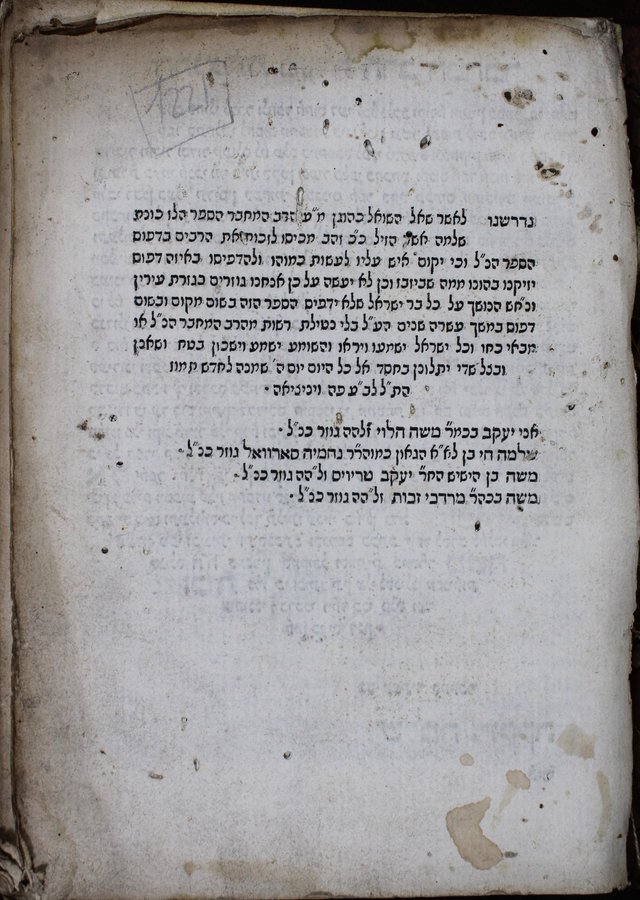 1221
נדרשנו לאשר שאל השואל כהוגן מ״ע הרב המחבר הספר הלז כונת
שלמה אשר הזיל כ״ב זהב מכיסו לזכות את הרבים בדפוס
הספר הנ״ל וכי יקום איש עליו לעשות כמוהו ולהדפיסו באיזה דפוס
יזיקנו בהונו ממה שביזבז וכן לא יעשה על כן אנחנו גוזרים בגזרת עירין
ונחש הנושך על כל בר ישראל שלא ידפיס הספר הזה בשום מקום ובשום
דפוס במשך עשרה שנים הע״ל בלי נטילת רשות מהרב המחבר הנ״ל או
מבאי כחו וכל ישראל ישמעו ויראו והשומע ישמע וישכון בטח ושאנן
ובצל שדי יתלונן בחסד אל כל היום יום ה׳ שמנה לחדש תמוז
הת״ל לב״ע פה ויניציאה
אני יעקב בכמר משה הלוי זלהה גוזר כנ״ל
שלמה חי בן לא״א הגאון כמוהרר נחמיה סארוואל גוזר כנ״ל
משה בן הישיש החר יעקב טריויס זל״הה גוזר כנ״ל
משה בכהר מרדכי זכות זל״הה גוזר כנ״ל